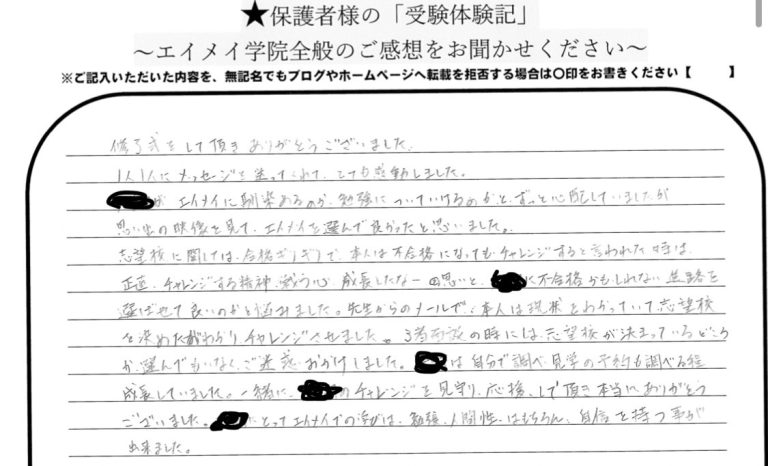 ★保護者様の「受験体験記」
～エイメイ学院全般のご感想をお聞かせください～
※ご記入いただいた内容を、無記名でもブログやホームページへ転載を拒否する場合は〇印をお書きください【　　】
修了式をして頂きありがとうございました。
1人1人にメッセージを送ってくれて、とても感動しました。
が エイメイに馴染めるのか、勉強についていけるのかと、ずっと心配していましたが
思い出の映像を見て、エイメイを選んで良かったと思いました。
志望校に関しては、合格ギリギリで、本人は不合格になってもチャレンジすると言われた時は、
正直、チャレンジする精神、戦う心、成長したなーの思いと、に不合格かもしれない進路を
選ばせて良いのかと悩みました。先生からのメールで、本人は現状をわかっていて、志望校
を決めたがわかり、チャレンジさせました。3者面談の時には、志望校が決まっているどころ
か、選んでもいなく、ご迷惑おかけしました。は自分で調べ、見学の予約も調べる程
成長していました。一緒に、のチャレンジを見守り、応援、して頂き本当にありがとう
ございました。にとってエイメイでの学びは、勉強、人間性はもちろん、自信を持つ事が
出来ました。